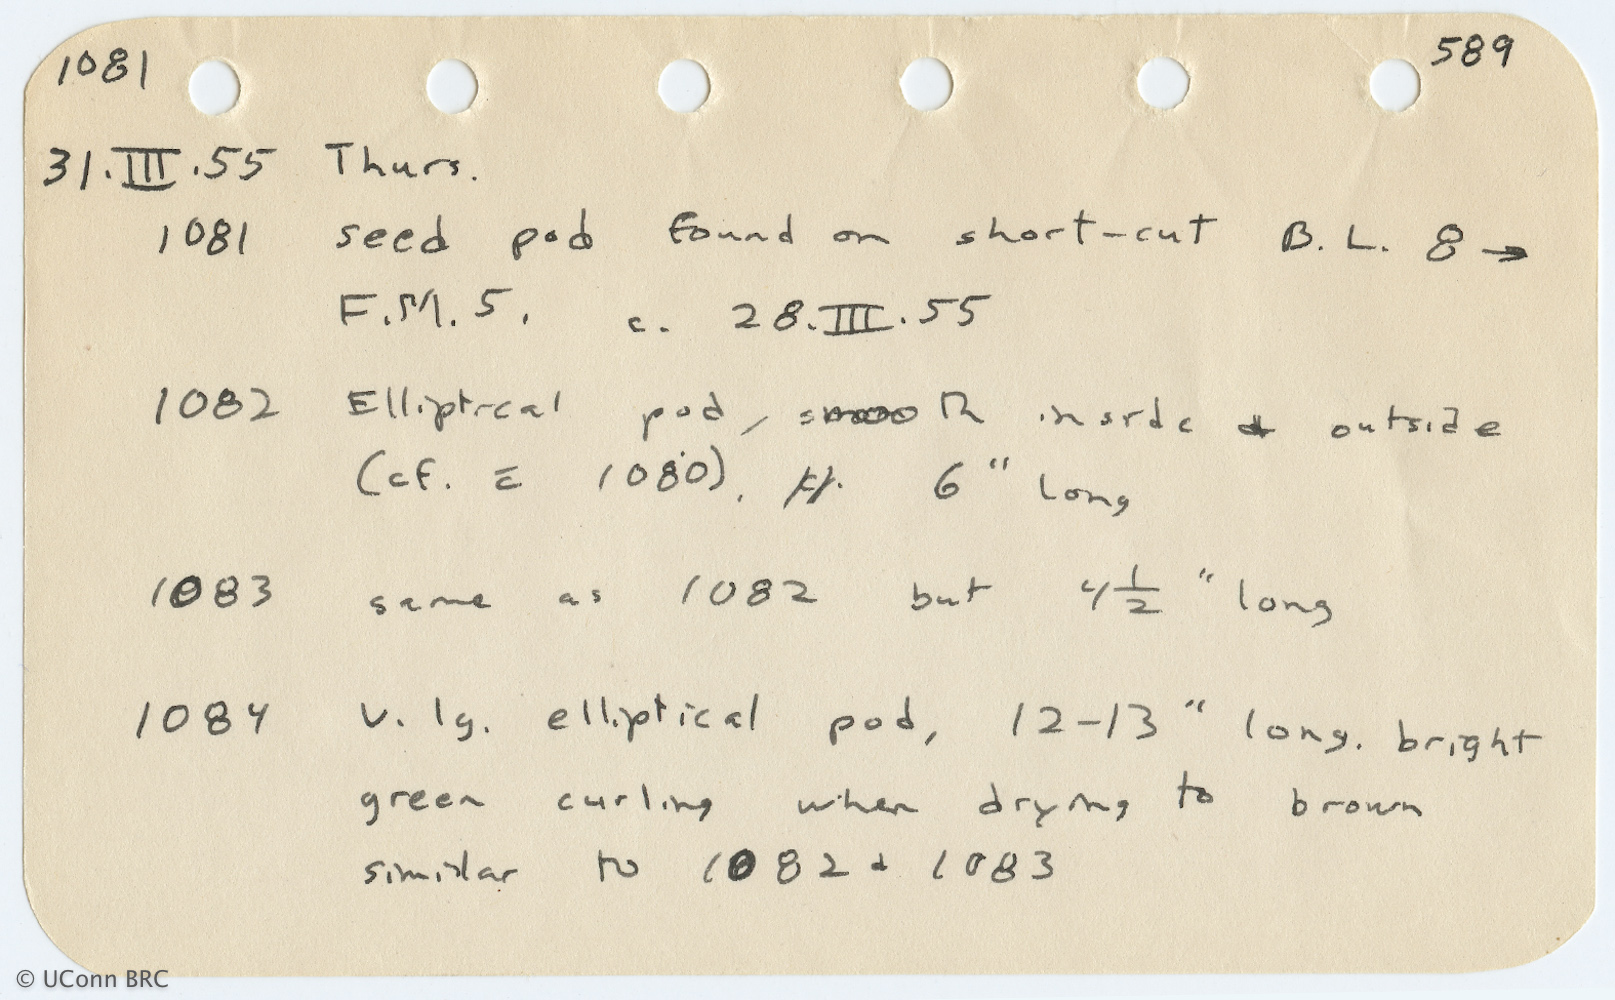 1081 589
31.III.55 Thurs.
1081 seed pod found on short-cut B.L. 8 →
F.M. 5. c. 28.III.55
1082 Elliptical pod, smooth inside & outside
(cf. c̄ 1080). 6" long
1083 same as 1082 but 4 1/2" long
1084 v. lg. elliptical pod, 12-13" long. bright
green curling when drying to brown
similar to 1082 & 1083
© UConn BRC